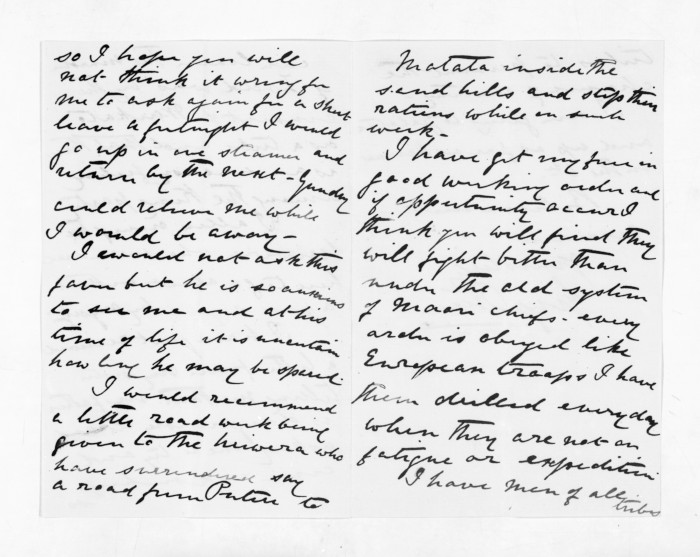 so I hope you will
not think it wrong for
me to ask again for a short
leave a fortnight I would
go up in one steamer and
return by the next - Gundry
could relieve me while
I would be away -
I would not ask this
favor but he is so anxious
to see me and at his
time of life it is uncertain
how long he may be spared.
I would recommend
a little road work being
given to the hiwera who
have surrendered say
a road from Putere to
Matata inside the
sand hills and stop their
rations while on such
work -
I have got my force in
good working order and
if opportunity occurs I
think you will find they
will fight better than
under the old system
of Maori chiefs - every
order is obeyed like
European troops I have
them drilled everyday
when they are not on
fatigue or expedition
I have men of all
tribes